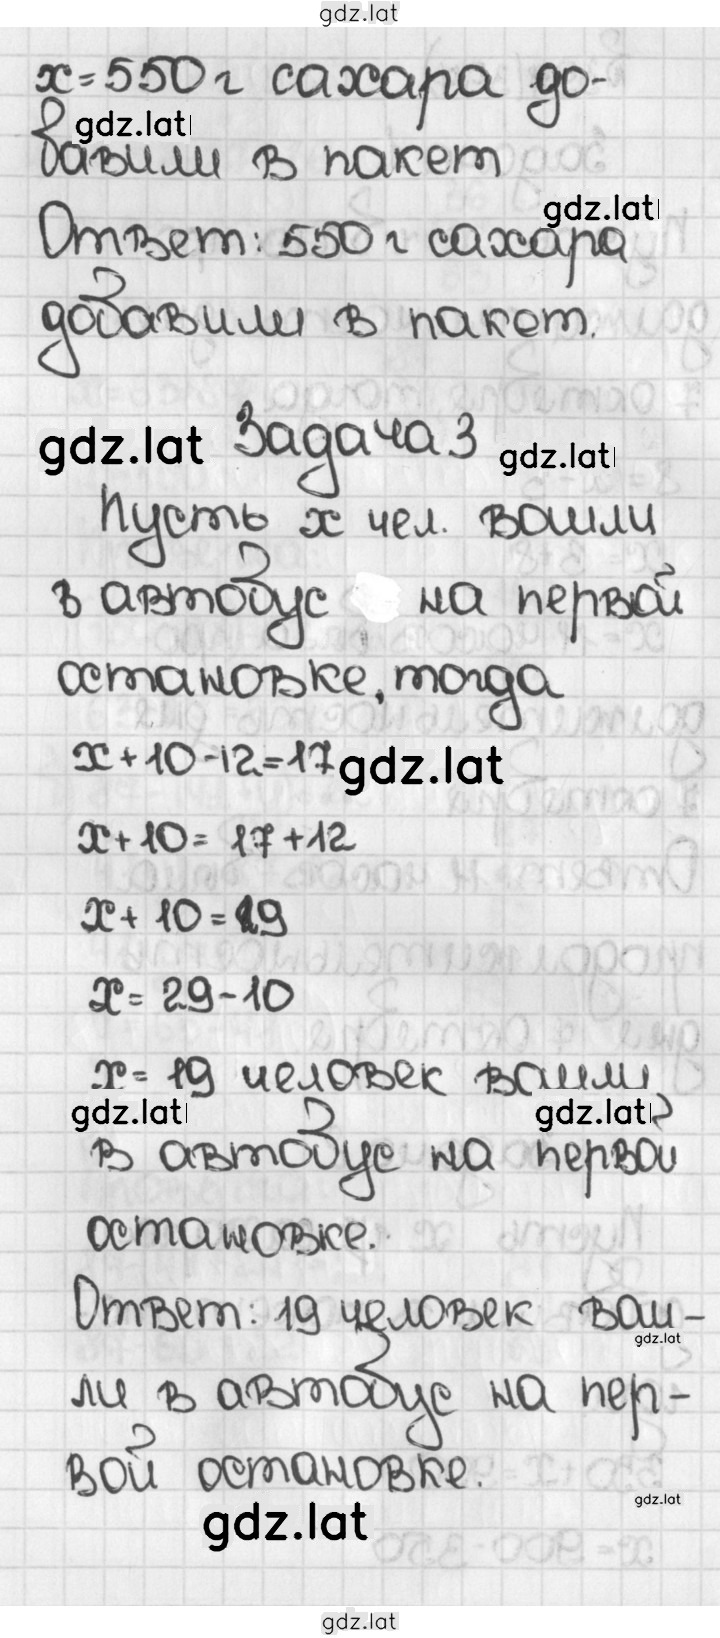 gdz.lat
x=550 г сахара до-
gdz.lat
бавили в пакет
gdz.lat
Ответ: 550 г сахара
добавили в пакет.
gdz.lat Задача 3 gdz.lat
Пусть x чел. вошли
в автобус на первой
остановке, тогда
x+10-12=17 gdz.lat
x+10=17+12
x+10=29
x=29-10
x=19 человек вошли
gdz.lat gdz.lat
в автобус на первой
остановке.
Ответ: 19 человек вош-
gdz.lat
ли в автобус на пер-
вой остановке.
gdz.lat
gdz.lat
gdz.lat